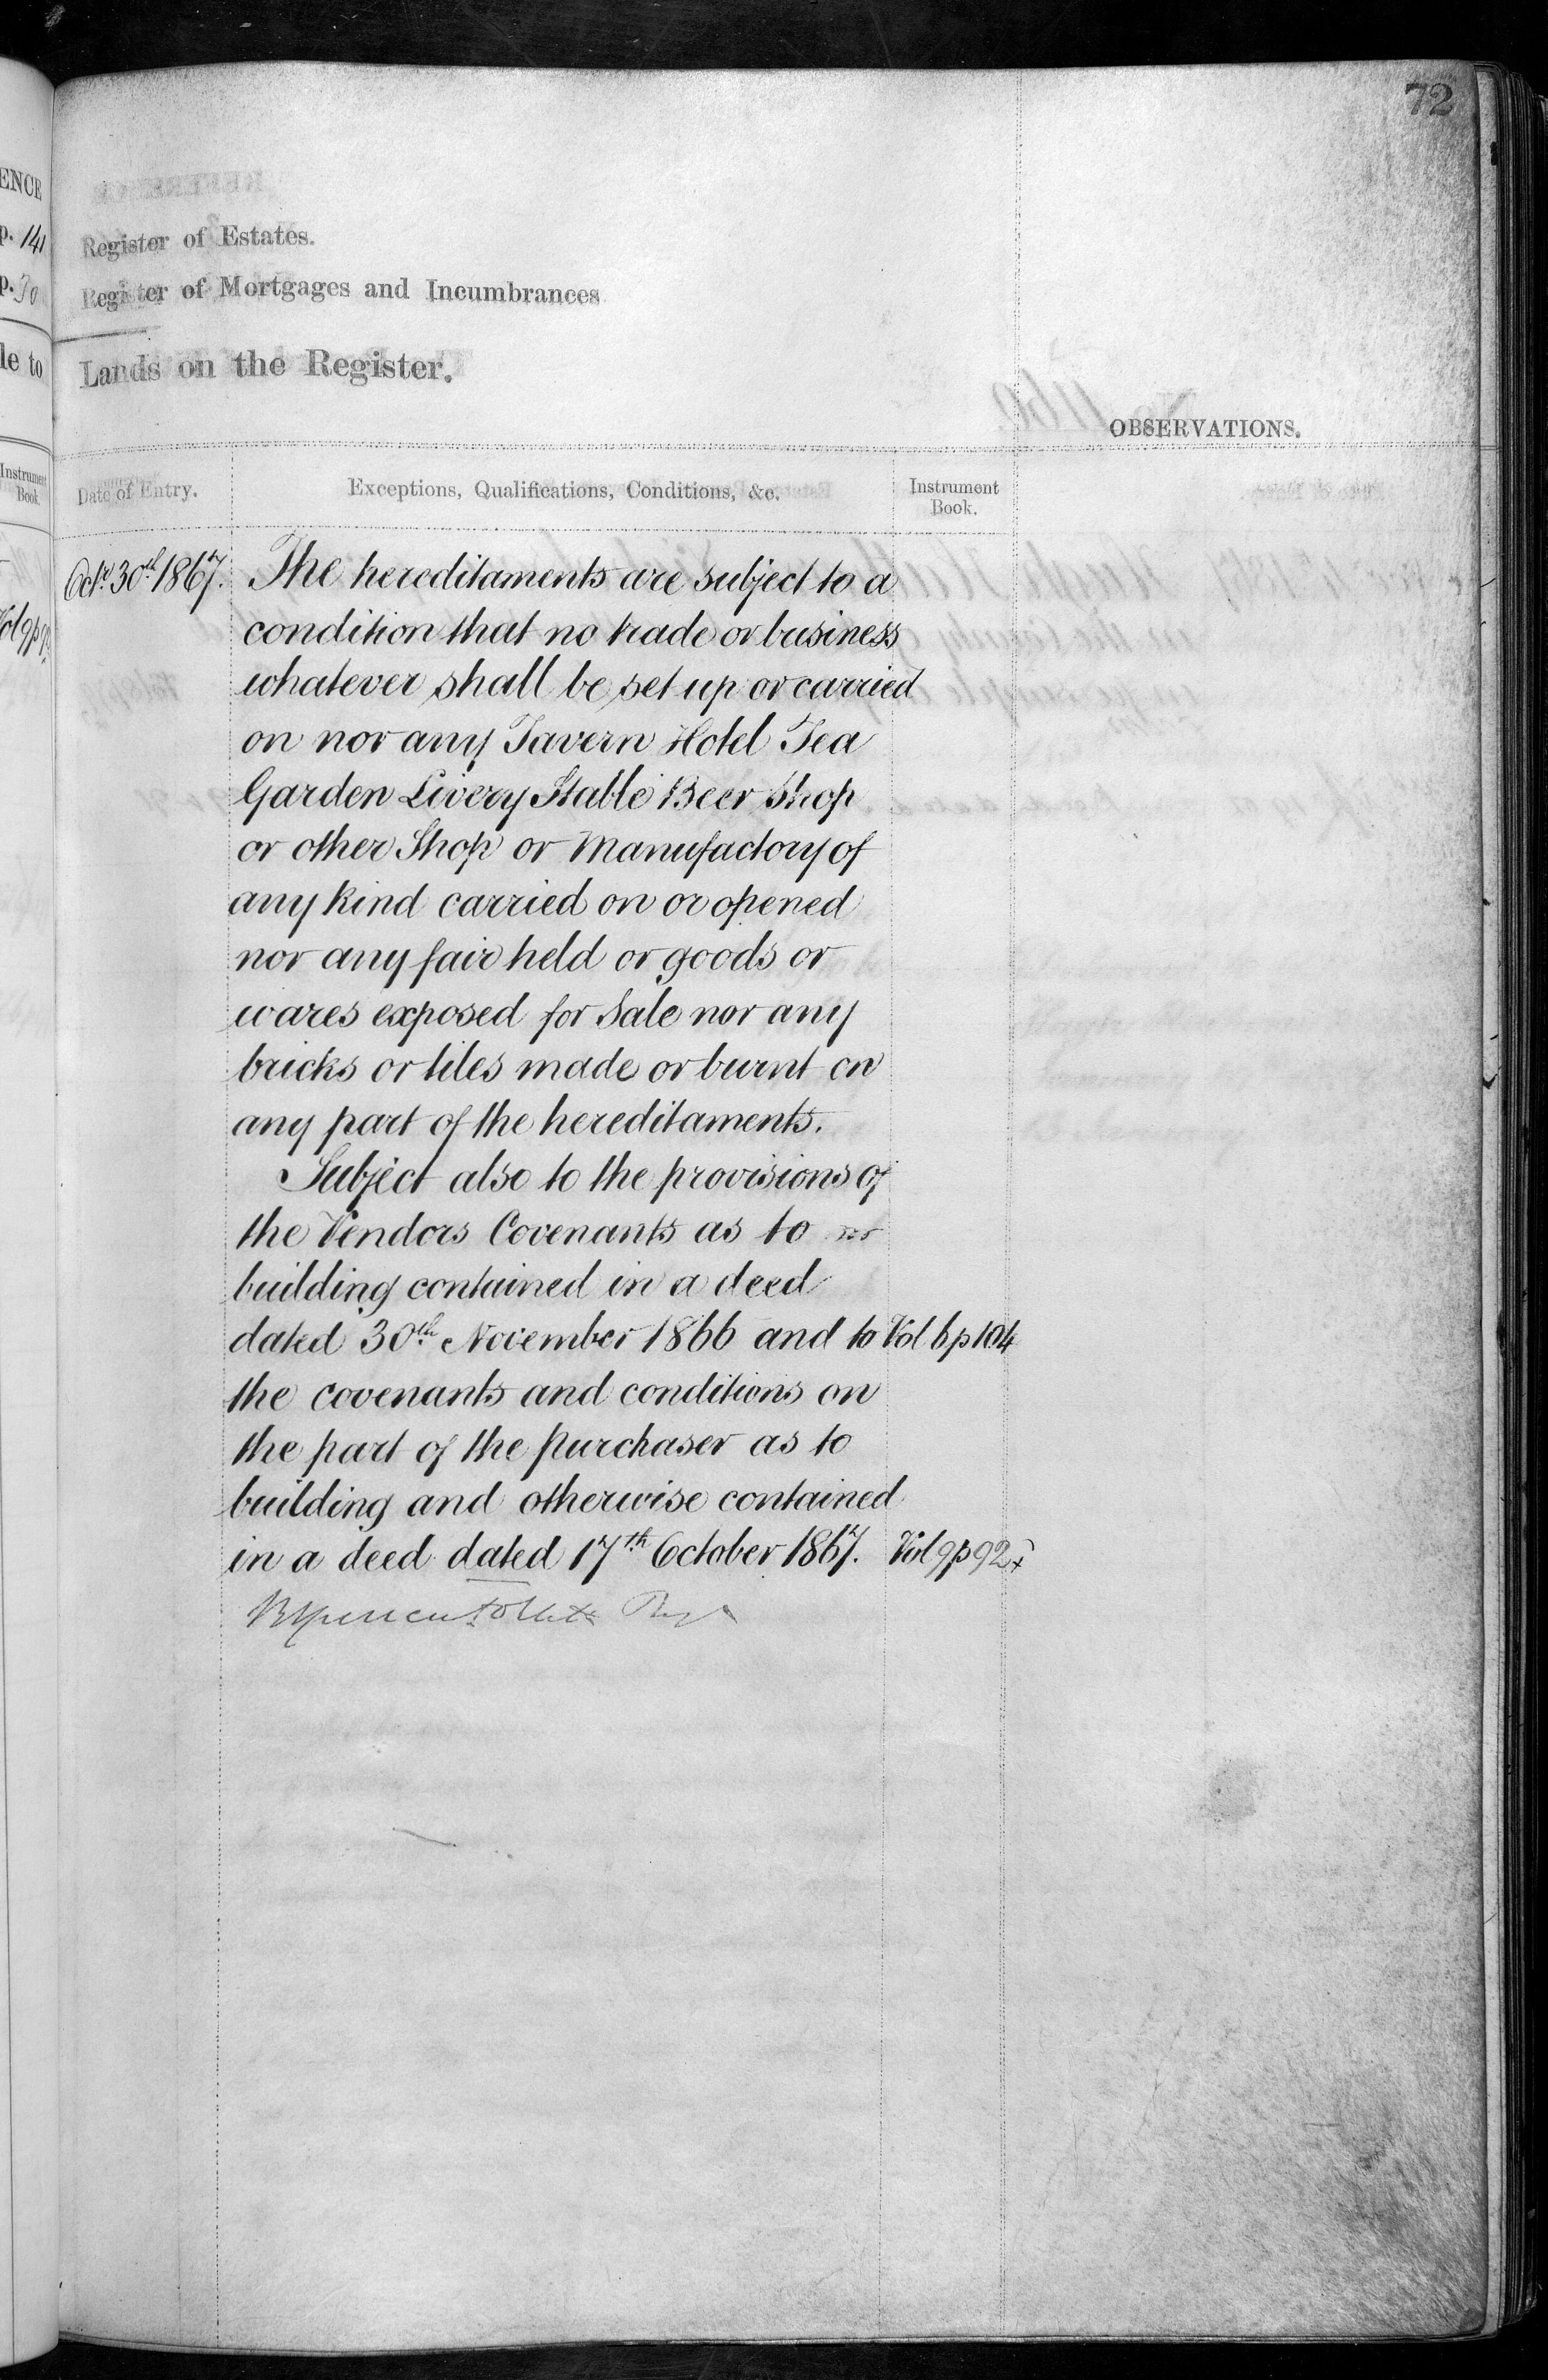 72
ENCE
p. 141
p. 30
le to
Instrument
Book.
Register of Estates.
Register of Mortgages and Incumbrances
Lands on the Register.
OBSERVATIONS.
Date of Entry.
Exceptions, Qualifications, Conditions, &c.
Instrument
Book.
Octr. 30th 1867. The hereditaments are subject to a
condition that no trade or business
whatever shall be set up or carried
on nor any Tavern Hotel Tea
Garden Livery Stable Beer Shop
or other Shop or Manufactory of
any kind carried on or opened
nor any fair held or goods or
wares exposed for Sale nor any
bricks or tiles made or burnt on
any part of the hereditaments.
Subject also to the provisions of
the Vendors Covenants as to
building contained in a deed
dated 30th November 1866 and to Vol 6 p 104
the covenants and conditions on
the part of the purchaser as to
building and otherwise contained
in a deed dated 17th October 1867. Vol 9 p 92